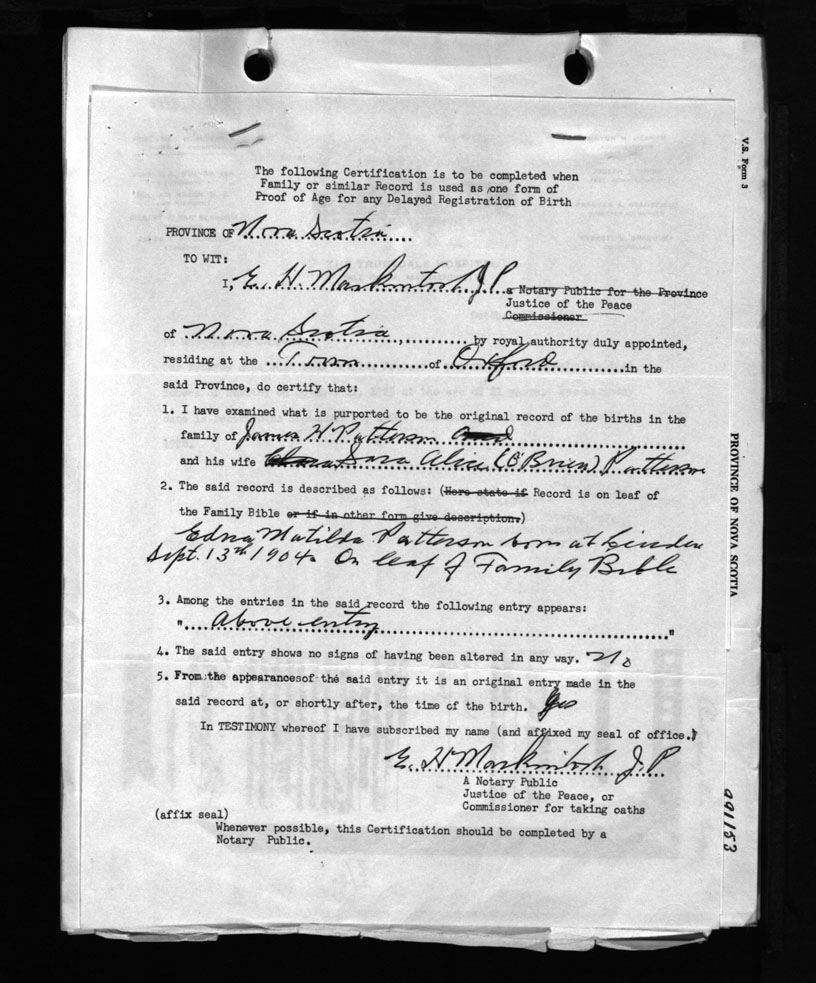 V.S. Form 3
The following Certification is to be completed when
Family or similar Record is used as one form of
Proof of Age for any Delayed Registration of Birth
PROVINCE OF Nova Scotia
TO WIT:
I, E. H. Mackintosh J P a Notary Public for the Province
Justice of the Peace
Commissioner
of Nova Scotia, by royal authority duly appointed,
residing at the Town of Oxford in the
said Province, do certify that:
1. I have examined what is purported to be the original record of the births in the
family of James H Patterson and
and his wife Sara Alice (O'Brien) Patterson
2. The said record is described as follows: (Here state if Record is on leaf of
the Family Bible or if in other form give description.)
Edna Matilda Patterson born at Linden
Sept. 13th 1904. On leaf of Family Bible
3. Among the entries in the said record the following entry appears:
"Above entry"
4. The said entry shows no signs of having been altered in any way. No
5. From the appearances of the said entry it is an original entry made in the
said record at, or shortly after, the time of the birth. Yes
In TESTIMONY whereof I have subscribed my name (and affixed my seal of office.)
E. H Mackintosh J. P
A Notary Public
Justice of the Peace, or
Commissioner for taking oaths
(affix seal)
Whenever possible, this Certification should be completed by a
Notary Public.
PROVINCE OF NOVA SCOTIA
991153